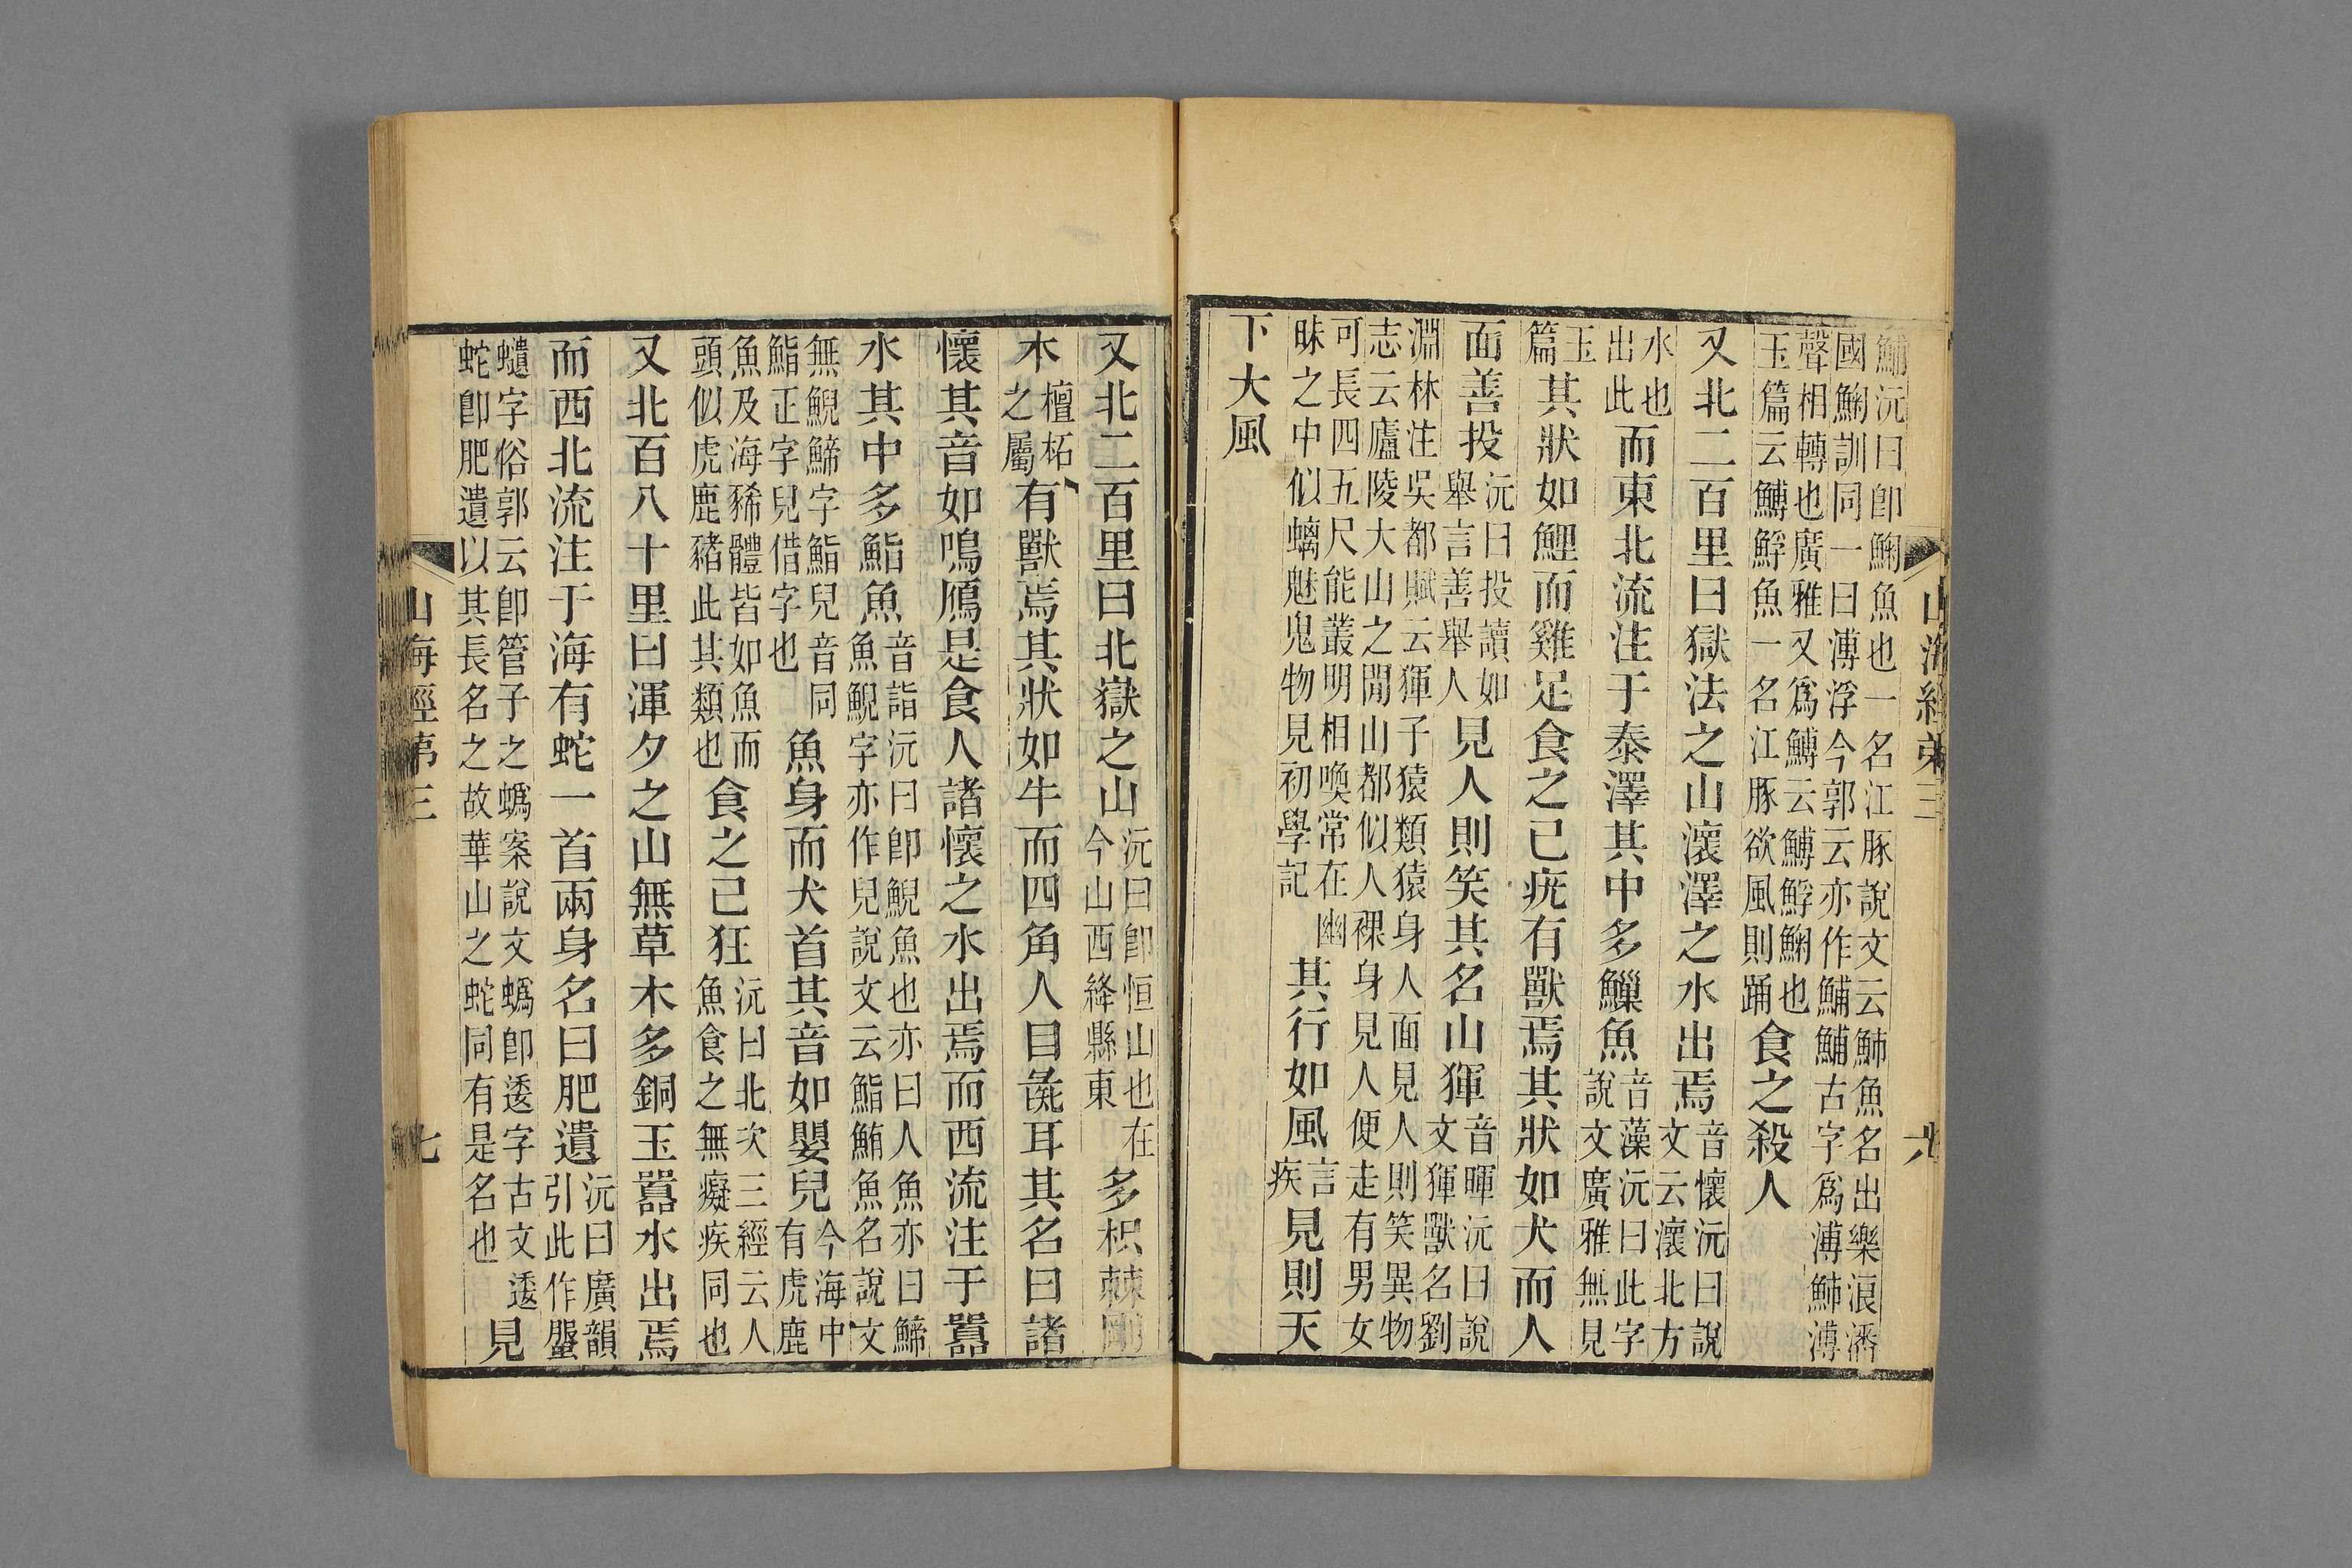 山海經第三
六
鯆沅曰卽䱡魚也一名江豚說文云魳魚名出樂浪潘
國䱡訓同一曰溥浮今郭云亦作鯆鯆古字爲溥魳溥
聲相轉也廣雅又爲鱄云鱄鯚䱡也
玉篇云鱄鯚魚一名江豚欲風則踊食之殺人
又北二百里曰獄法之山瀤澤之水出焉音懷沅曰說文云瀤北方
水也出此而東北流注于泰澤其中多鱳魚音藻沅曰此字說文廣雅無見
玉篇其狀如鯉而雞足食之已疣有獸焉其狀如犬而人
面善投沅曰投讀如舉言善舉人見人則笑其名山𤟤音暉沅曰說文𤟤獸名劉
淵林注吳都賦云𤟤子猿類猿身人面見人則笑異物
志云廬陵大山之閒山都似人裸身見人便走有男女
可長四五尺能叢明相喚常在幽
昧之中似螭魅鬼物見初學記其行如風言疾見則天
下大風
又北二百里曰北嶽之山沅曰卽恒山也在今山西絳縣東多枳棘剛
木檀柘之屬有獸焉其狀如牛而四角人目彘耳其名曰諸
懷其音如鳴鴈是食人諸懷之水出焉而西流注于嚻
水其中多鮨魚音詣沅曰卽鯢魚也亦曰人魚亦曰鯑魚鯢字亦作兒說文云鮨鮪魚名說文
無鯢鯑字鮨兒音同鮨正字兒借字也魚身而犬首其音如嬰兒今海中有虎鹿
魚及海豨體皆如魚而頭似虎鹿豬此其類也食之已狂沅曰北次三經云人魚食之無癡疾同也
又北百八十里曰渾夕之山無草木多銅玉嚻水出焉
而西北流注于海有蛇一首兩身名曰肥遺沅曰廣韻引此作𧔥見
䗽字俗郭云卽管子之蟡案說文蟡卽逶字古文逶
蛇卽肥遺以其長名之故華山之蛇同有是名也
山海經第三
七